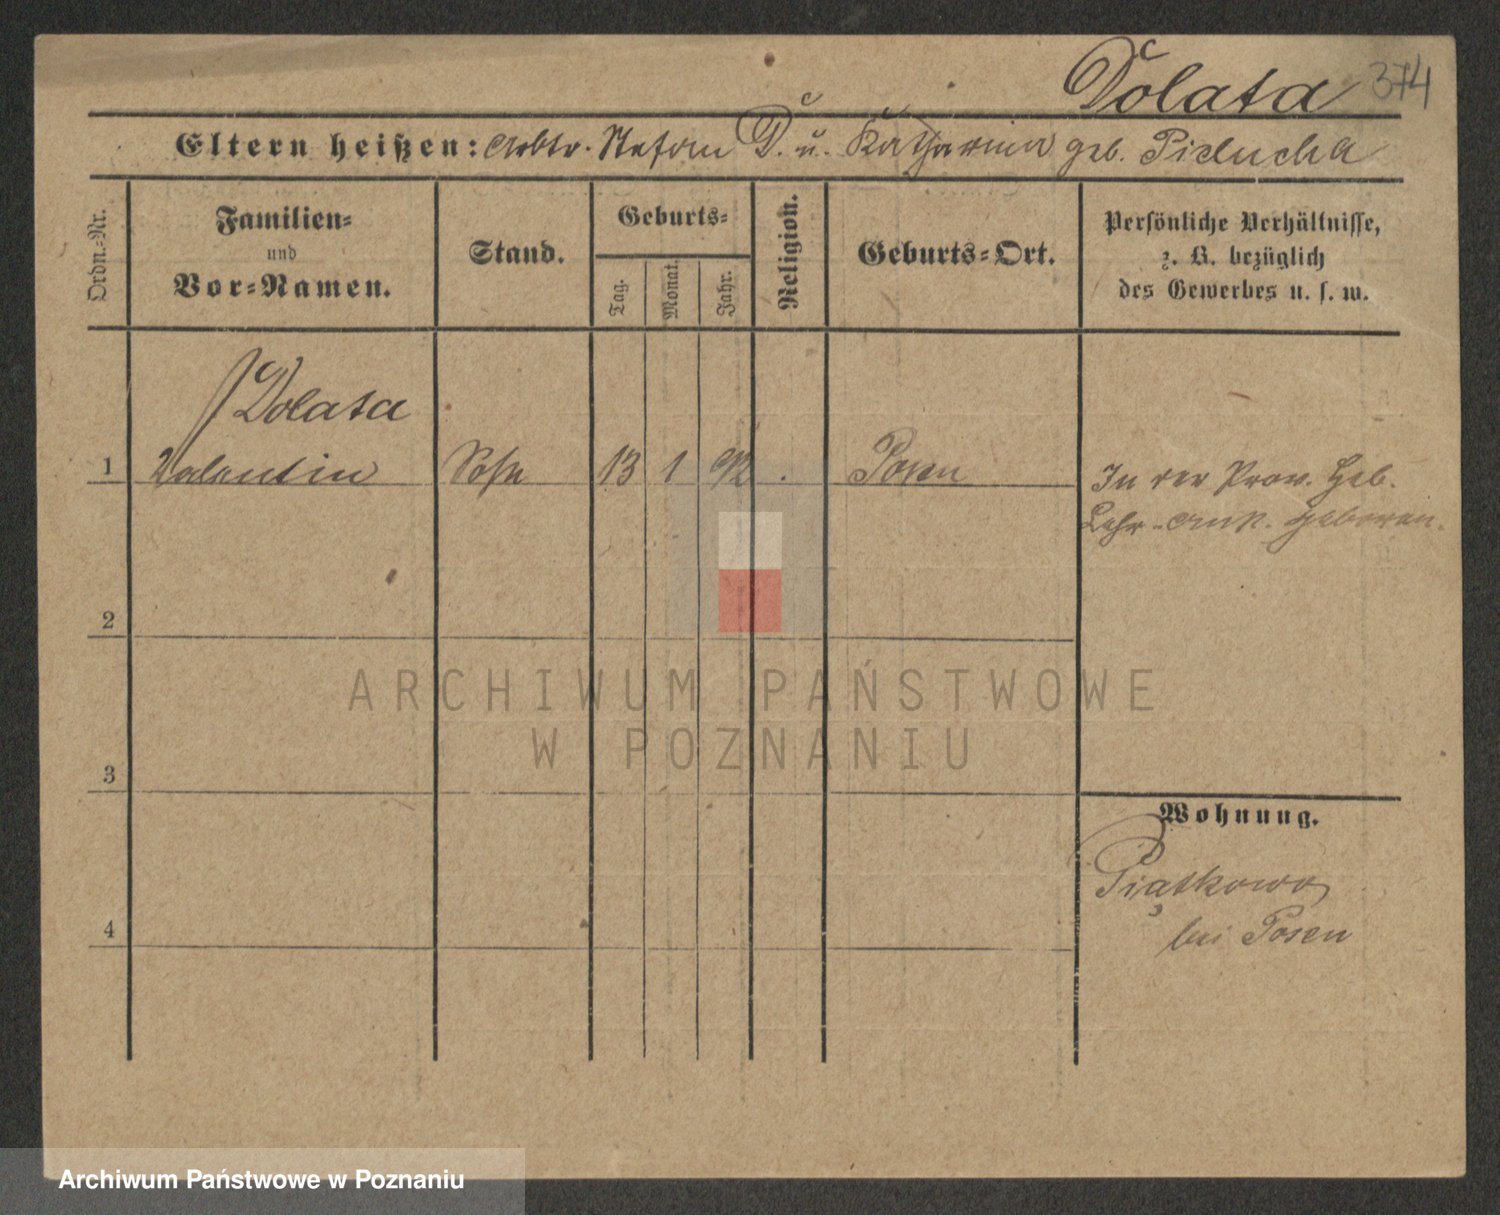 Dolata 374
Eltern heißen: Arbtr. Stefan D. u. Katharina geb. Pielucha
Ordn.-Nr.
Familien-
und
Vor-Namen.
Stand.
Geburts-
Tag.
Monat.
Jahr.
Religion.
Geburts-Ort.
Persönliche Verhältnisse,
z. B. bezüglich
des Gewerbes u. s. w.
Dolata
1 Valentin Sohn 13 1 92 . Posen
In der Prov. Heb.
Lehr-Anst. geboren.
2
3
4
Wohnung.
Piątkowo
bei Posen
ARCHIWUM PAŃSTWOWE
W POZNANIU
Archiwum Państwowe w Poznaniu